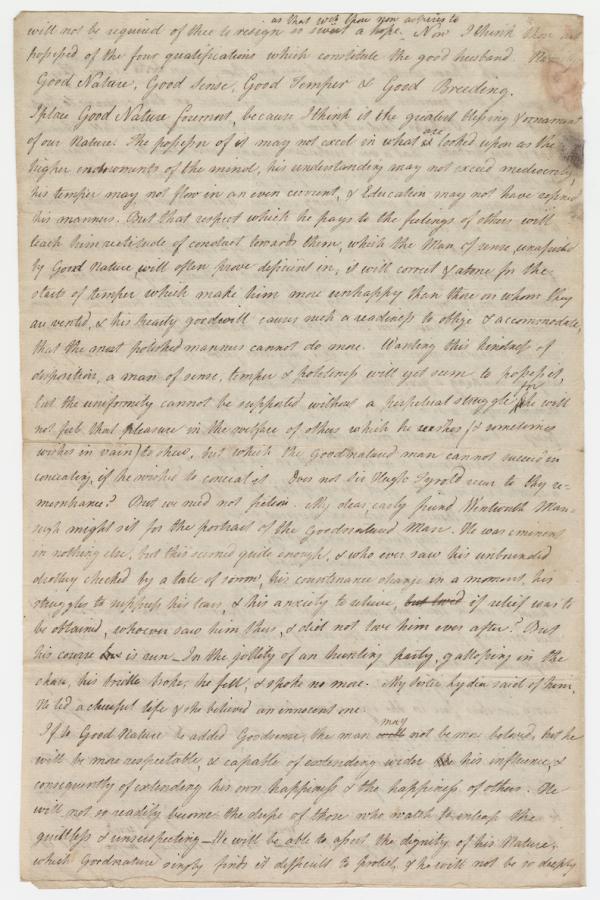 as that with thou now aspires to
will not be required of thee to resign so sweet a hope. Now I think thou art
possessed of the four qualifications which constitute the good husband.
Good Nature, Good Sense, Good Temper & Good Breeding.
I place Good Nature foremost, because I think it the greatest blessing & ornament
of our Nature. The possessor of it may not excel in what are looked upon as the
higher endowments of the mind, his understanding may not exceed mediocrity,
his temper may not flow in an even current, & Education may not have refined
his manners. But that respect which he pays to the feelings of others will
teach him rectitude of conduct towards them, which the Man of sense, unassisted
by Good Nature, will often prove deficient in, it will correct & atone for the
starts of temper which make him more unhappy than those on whom they
are vented, & his hearty goodwill causes such a readiness to oblige & accommodate,
that the most polished manners cannot do more. Wanting this kindness of
disposition, a man of sense, temper & politeness will yet seem to possess it,
but the uniformity cannot be supported without a perpetual struggle, for he will
not feel that pleasure in the welfare of others which he wishes (& sometimes
wishes in vain) to shew, but which the goodnatured man cannot succeed in
concealing, if he wishes to conceal it. Does not Sir Hugh Tyrold occur to thy re-
membrance? But we need not fiction. My dear, early friend, Wentworth Man-
sergh might sit for the portrait of the Goodnatured Man. He was eminent
in nothing else, but this seemed quite enough, & who ever saw his unbounded
drollery checked by a tale of sorrow, his countenance change in a moment, his
struggles to suppress his tears, & his anxiety to relieve, but loved if relief was to
be obtained, whoever saw him thus, & did not love him ever after? But
his course is run – In the jollity of an hunting party, galloping in the
chase, his bridle broke, he fell, & spoke no more. My Sister Lydia said of him,
He led a cheerful life & she believed an innocent one.
If to Good Nature is added Goodsense, the man may not be more beloved, but he
will be more respectable, & capable of extending wider his influence, &
consequently of extending his own happiness & the happiness of others. He
will not so readily become the dupe of those who watch to enleap the
guiltless & unsuspecting – He will be able to assert the dignity of his Nature,
which Goodnature singly finds it difficult to protect, & he will not be so deeply